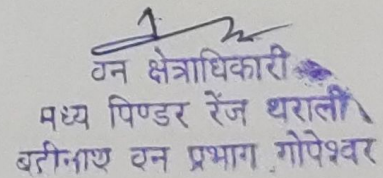 वन क्षेत्राधिकारी
मध्य पिण्डर रेंज थराली
बद्रीनाथ वन प्रभाग गोपेश्वर